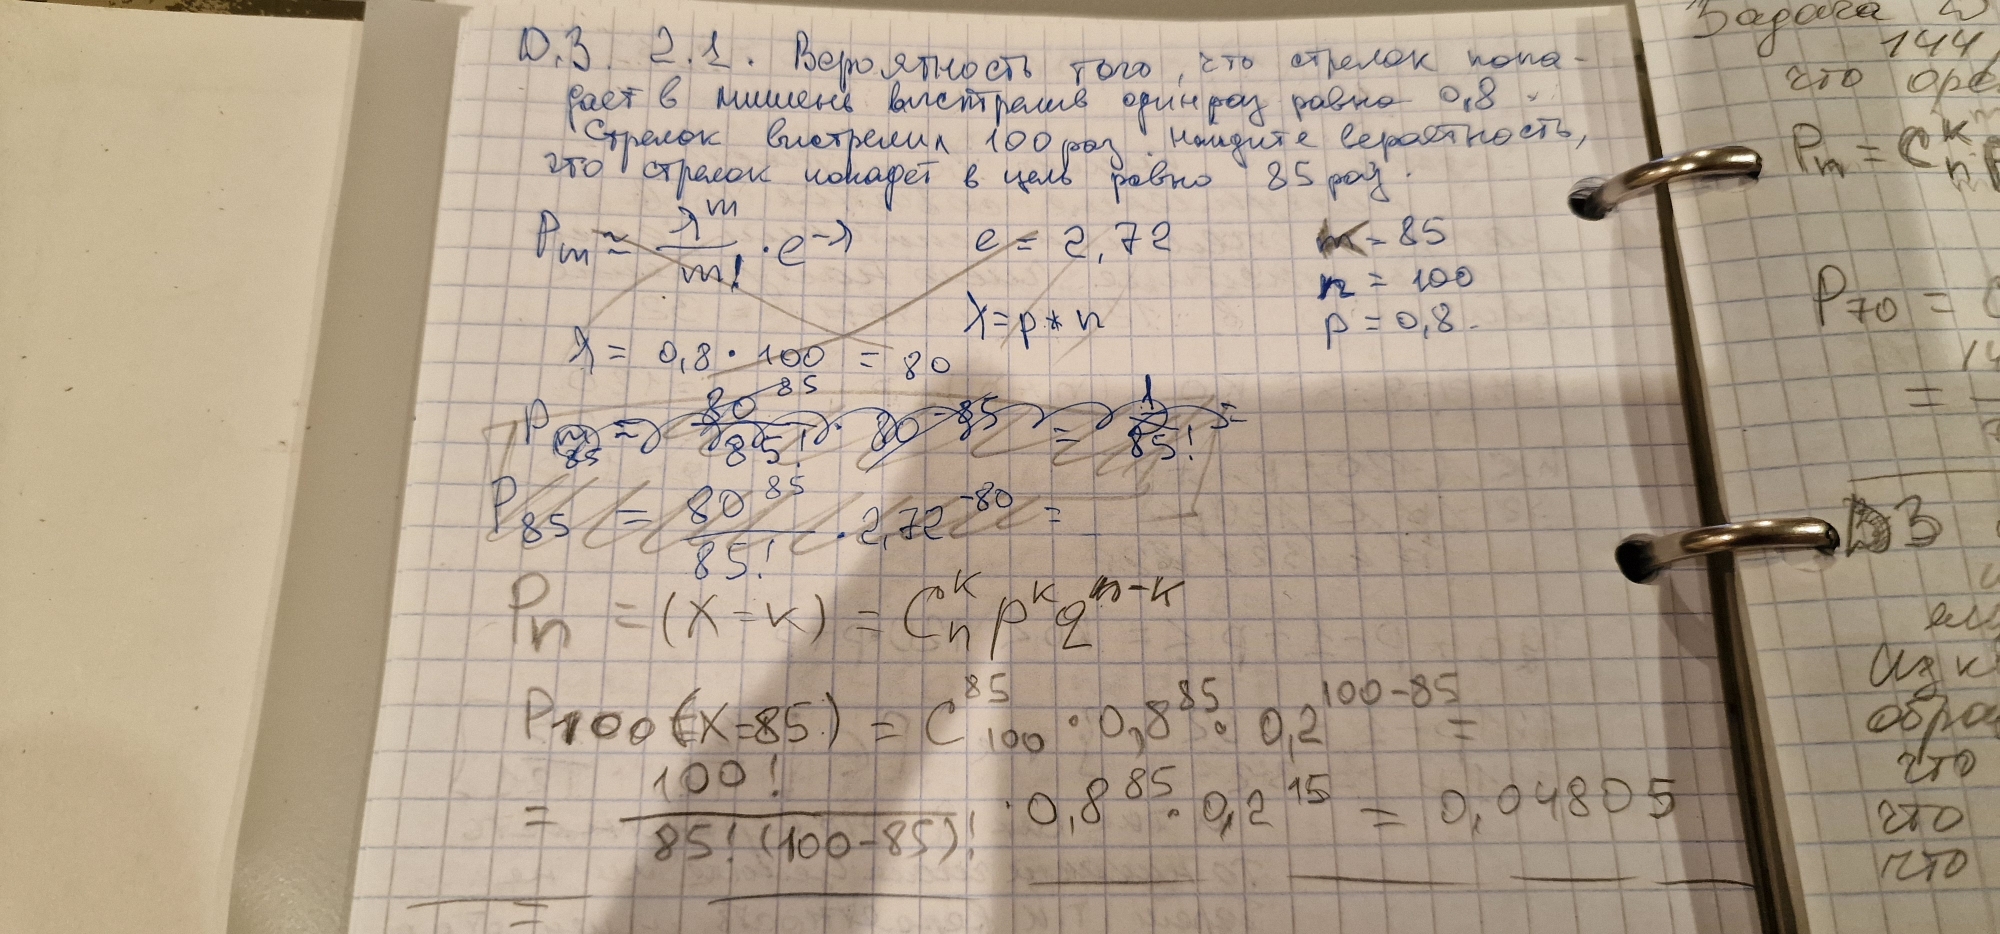 Д.З. 2.1. Вероятность того, что стрелок попа-
дает в мишень выстрелив один раз равна 0,8.
Стрелок выстрелил 100 раз. Найдите вероятность,
что стрелок попадёт в цель равно 85 раз.
Pm ≈ λ^m / m! · e^-λ
e = 2,72
к = 85
n = 100
λ = p * n
p = 0,8.
λ = 0,8 · 100 = 80
P 85 ≈ 80^85 / 85! · 80^-85 = 1 / 85! =
P85 = 80^85 / 85! · 2,72^-80 =
Pn = (X = к) = C_n^к p^к q^n-к
P100 (X=85) = C_100^85 · 0,8^85 · 0,2^100-85 =
= 100! / 85! (100-85)! · 0,8^85 · 0,2^15 = 0,04805
=
Задача
144
что
Pn = C_n^к
P70 =
=
ДЗ
из к
что
что
что